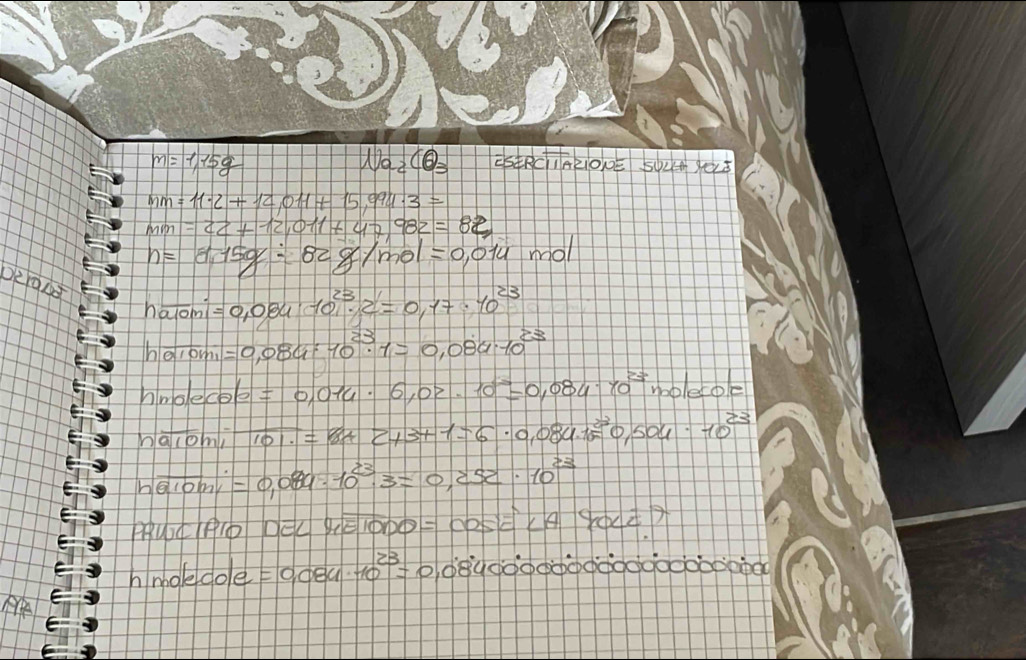 m = 1,15g Na₂CO₃ ESERCITAZIONE SULLA MOLE
mm = 11·2 + 12,011 + 15,994·3 =
mm = 22 + 12,011 + 47,982 = 82
n = 1,15g : 82 g/mol = 0,014 mol
n atomi = 0,084·10²³·2 = 0,17·10²³
n atomi = 0,084·10²³·1 = 0,084·10²³
n molecole = 0,014 · 6,02 · 10²³ = 0,084·10²³ molecole
n atomi tot. = 2+3+1=6 · 0,084·10²³ 0,504 · 10²³
n atomi = 0,084·10²³·3 = 0,252 · 10²³
PRINCIPIO DEL METODO = COS'È LA MOLE?
n molecole = 0,084·10²³ = 0,084000000000000000000